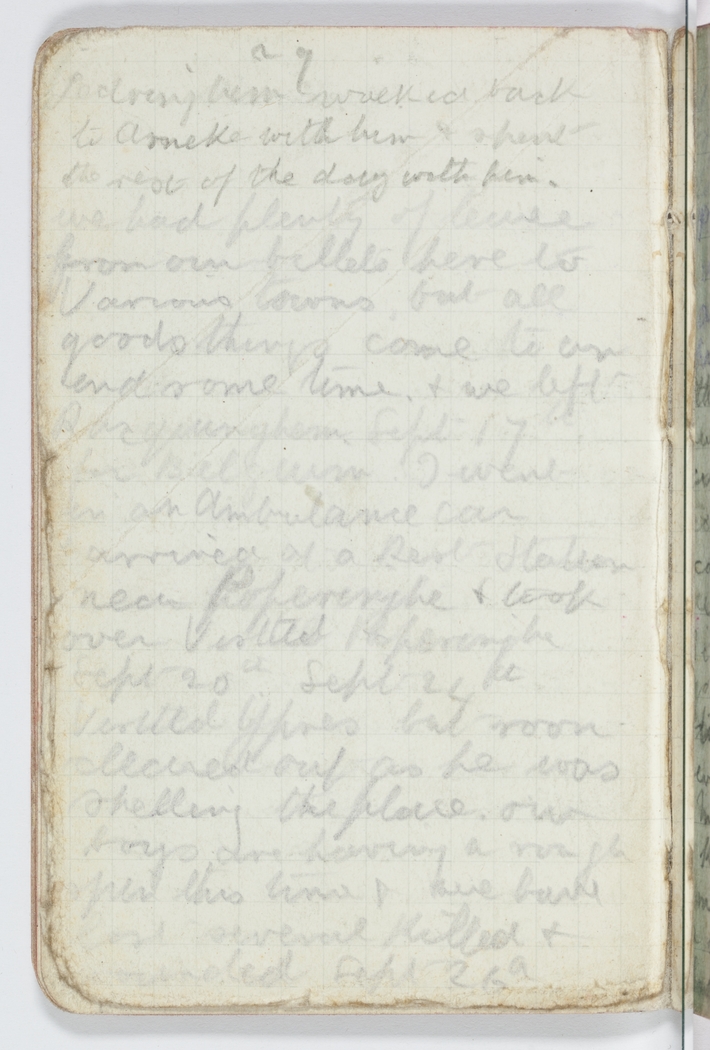 29
walked back
to Arneke with him & spent
the rest of the day with him.
we had plenty of leave
from our billets here to
Various towns, but all
goods things come to an
end some time. & we left
Sept 17
for Belgium I went
in an Ambulance car
arrived at a Rest Station
near Poperinghe & took
over Visited Poperinghe
Sept 20th Sept
Visited Ypres but soon
cleared out as he was
shelling the place. our
boys are having a rough
spell this time & we have
lost several Killed &
wounded Sept 26th